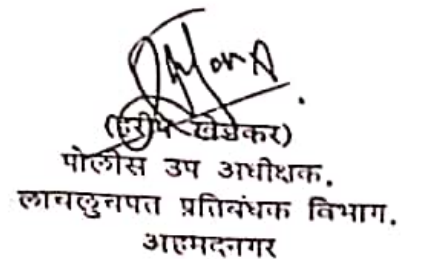 (हरीष खेडेकर)
पोलीस उप अधीक्षक.
लाचलुचपत प्रतिबंधक विभाग.
अहमदनगर